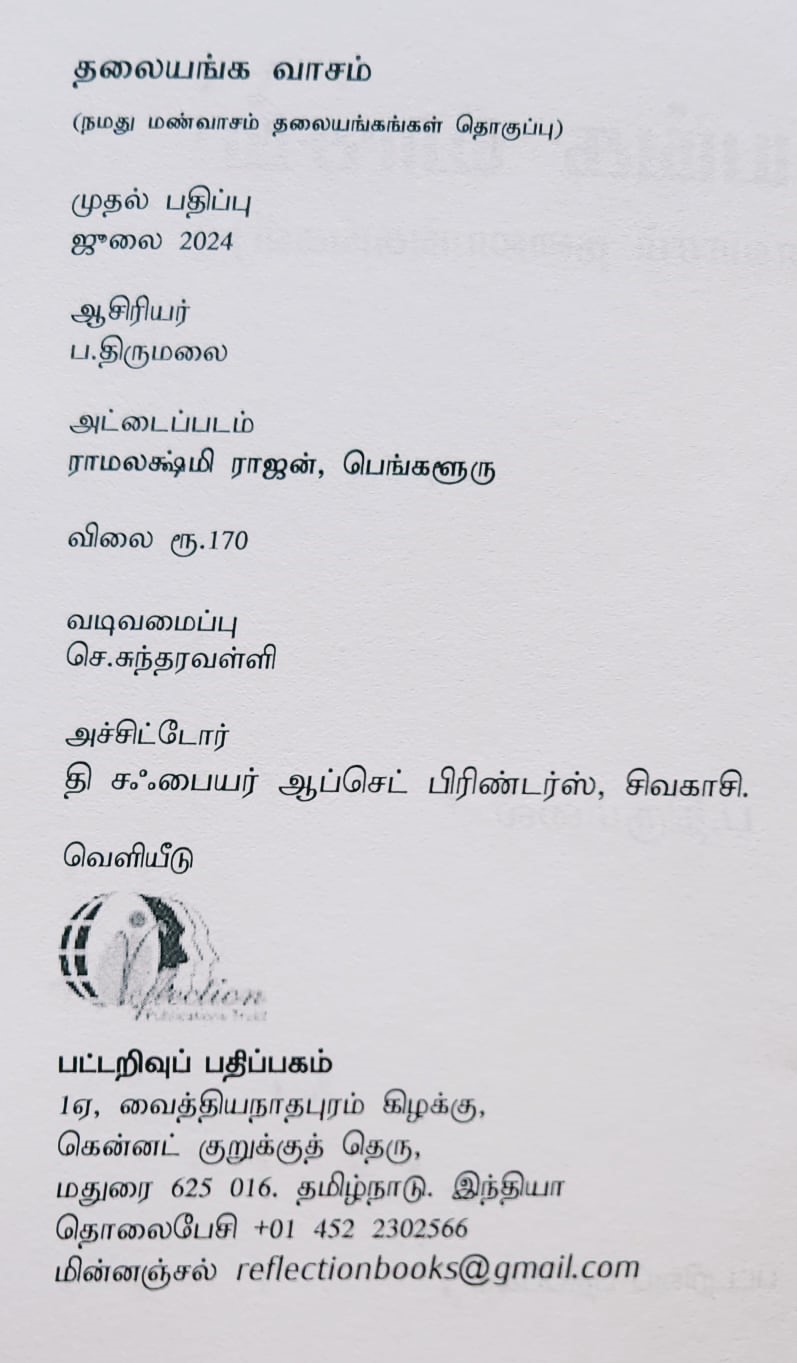 தலையங்க வாசம்
(நமது மண்வாசம் தலையங்கங்கள் தொகுப்பு)
முதல் பதிப்பு
ஜுலை 2024
ஆசிரியர்
ப.திருமலை
அட்டைப்படம்
ராமலக்ஷ்மி ராஜன், பெங்களூரு
விலை ரூ.170
வடிவமைப்பு
செ.சுந்தரவள்ளி
அச்சிட்டோர்
தி சஃபையர் ஆப்செட் பிரிண்டர்ஸ், சிவகாசி.
வெளியீடு
Reflection
Publications Trust
பட்டறிவுப் பதிப்பகம்
1ஏ, வைத்தியநாதபுரம் கிழக்கு,
கென்னட் குறுக்குத் தெரு,
மதுரை 625 016. தமிழ்நாடு. இந்தியா
தொலைபேசி +01 452 2302566
மின்னஞ்சல் reflectionbooks@gmail.com